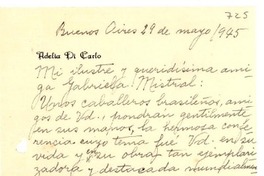 725
Buenos Aires 29 de mayo/945
Adelia Di Carlo
Mi ilustre y queridísima ami-
ga Gabriela Mistral:
Unos caballeros brasileños, ami-
gos de Vd., pondrán gentilmente
en sus manos, la hermosa confe-
rencia cuyo tema fué Vd. en su
vida y en su obra tan ejemplari-
zadora y destacada mundialmen